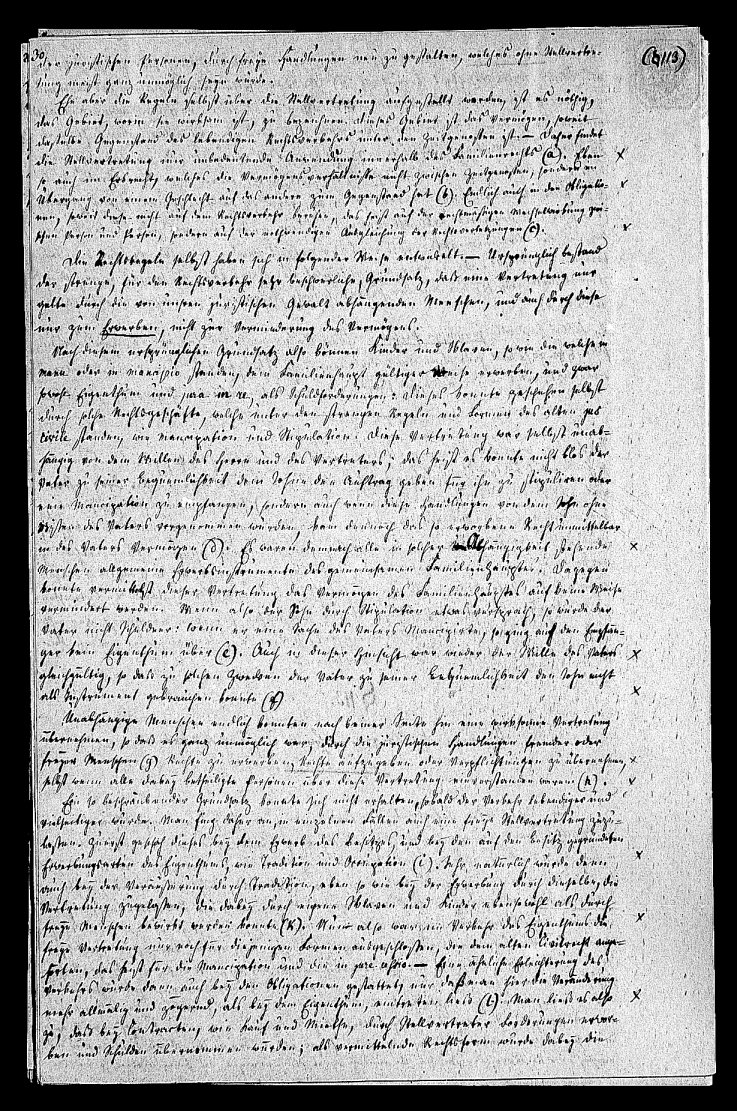 30
der juristischen Personen, durch freye Handlungen neu zu gestalten, welches ohne Stellvertre-
tung meist ganz unmöglich seyn würde.
(B 113)
Ehe aber die Regeln selbst über die Stellvertretung aufgestellt werden, ist es nöthig,
das Gebiet, worin sie wirksam ist, zu bezeichnen. Dieses Gebiet ist das Vermögen, soweit
dasselbe Gegenstand des lebendigen Rechtsverkehrs unter den Zeitgenossen ist. — Daher findet
die Stellvertretung nur unbedeutende Anwendung innerhalb des Familienrechts (a). Eben
so auch im Erbrecht, welches die Vermögensverhältnisse nicht zwischen Zeitgenossen, sondern im
Übergang von einem Geschlecht auf das andere zum Gegenstand hat (b). Endlich auch in den Obligatio-
nen, soweit diese nicht auf dem Rechtsverkehr beruhen, das heißt auf der rechtmäßigen Wechselwirkung zwi-
schen Person und Person, sondern auf der nothwendigen Ausgleichung der Rechtsverletzungen (c).
Die Rechtsregeln selbst haben sich in folgender Weise entwickelt. — Ursprünglich bestand
der strenge, für den Rechtsverkehr sehr beschwerliche, Grundsatz, daß eine Vertretung nur
gelte durch die von unsrer juristischen Gewalt abhängenden Menschen, und auch durch diese
nur zum Erwerben, nicht zur Verminderung des Vermögens.
Nach diesem ursprünglichen Grundsatz also können Kinder und Sklaven, so wie die welche in
manu oder in mancipio standen, dem Familienhaupt gültiger Weise erwerben, und zwar
sowohl Eigenthum und jura in re, als Schuldforderungen. Dieses konnte geschehen selbst
durch solche Rechtsgeschäfte, welche unter den strengen Regeln und Formen des alten jus
civile standen, wie Mancipation und Stipulation. Diese Vertretung war selbst unab-
hängig von dem Willen des Herrn und des Vertreters; das heißt es konnte nicht blos der
Vater zu seiner Bequemlichkeit dem Sohne den Auftrag geben für ihn zu stipuliren oder
eine Mancipation zu empfangen, sondern auch wenn diese Handlungen von dem Sohn ohne
Wissen des Vaters vorgenommen wurden, kam dennoch das so erworbene Recht unmittelbar
in des Vaters Vermögen (d). Es waren demnach alle in solcher Abhängigkeit stehende
Menschen allgemeine Erwerbsinstrumente des gemeinsamen Familienhauptes. Dagegen
konnte vermittelst dieser Vertretung das Vermögen des Familienhauptes auf keine Weise
vermindert werden. Wenn also der Sohn durch Stipulation etwas versprach, so wurde der
Vater nicht Schuldner: wenn er eine Sache des Vaters mancipirte, so ging auf den Empfän-
ger kein Eigenthum über (e). Auch in dieser Hinsicht war wieder der Wille des Vaters
gleichgültig, so daß zu solchen Zwecken der Vater zu seiner Bequemlichkeit den Sohn nicht
als Instrument gebrauchen konnte (f).
Unabhängige Menschen endlich konnten nach keiner Seite hin eine wirksame Vertretung
übernehmen, so daß es ganz unmöglich war, durch die juristischen Handlungen fremder oder
freyer Menschen (g) Rechte zu erwerben, Rechte aufzugeben oder Verpflichtungen zu übernehmen,
selbst wenn alle dabey betheiligte Personen über diese Vertretung einverstanden waren (h).
Ein so beschränkender Grundsatz konnte sich nicht erhalten, sobald der Verkehr lebendiger und
vielseitiger wurde. Man fing daher an, in einzelnen Fällen auch eine freye Stellvertretung zuzu-
lassen. Zuerst geschah dieses bey dem Erwerb des Besitzes, und bey den auf den Besitz gegründeten
Erwerbungsarten des Eigenthums, wie Tradition und Occupation (i). Sehr natürlich wurde denn
auch bey der Veräußerung durch Tradition, eben so wie bey der Erwerbung durch dieselbe, die
Vertretung zugelassen, die dabey durch eigene Sklaven und Kinder ebensowohl als durch
freye Menschen bewirkt werden konnte (k). Nun also war im Verkehr des Eigenthums die
freye Vertretung nur noch für diejenigen Formen ausgeschlossen, die dem alten Civilrecht ange-
hörten, das heißt für die Mancipation und die in jure cessio. — Eine ähnliche Erleichterung des
Verkehrs wurde dann auch bey den Obligationen gestattet, nur daß man hier die Veränderung
mehr allmälig und zögernd, als bey dem Eigenthum, eintreten ließ (l). Man ließ es also
zu, daß bey Contracten, wie Kauf und Miethe, durch Stellvertreter Forderungen erwor-
ben und Schulden übernommen wurden; als vermittelnde Rechtsform wurde dabey die